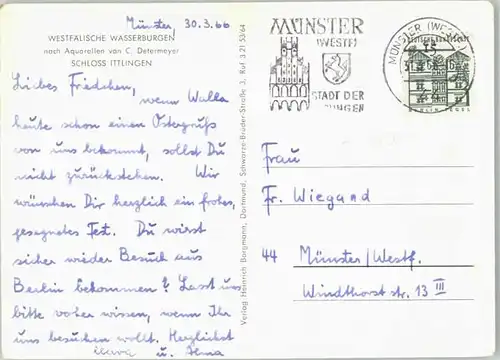 Münster, 30.3.66
WESTFÄLISCHE WASSERBURGEN
nach Aquarellen von C. Determeyer
SCHLOSS ITTLINGEN
Liebes Friedchen,
wenn Walla
heute schon einen Ostergruß
von uns bekommt, sollst Du
nicht zurückstehen. Wir
wünschen Dir herzlich ein frohes,
gesegnetes Fest. Du wirst
sicher wieder Besuch aus
Berlin bekommen? Lasst uns
bitte vorher wissen, wenn Ihr
uns besuchen wollt. Herzlichst
u. Alma
Verlag Heinrich Borgmann, Dortmund, Schwarze-Brüder-Straße 3, Ruf 3 21 53/64
MÜNSTER
(WESTF)
STADT DER
UNGEN
MÜNSTER (WESTF)
15
Frau
Fr. Wiegand
44 Münster/Westf.
Windthorststr. 13 III